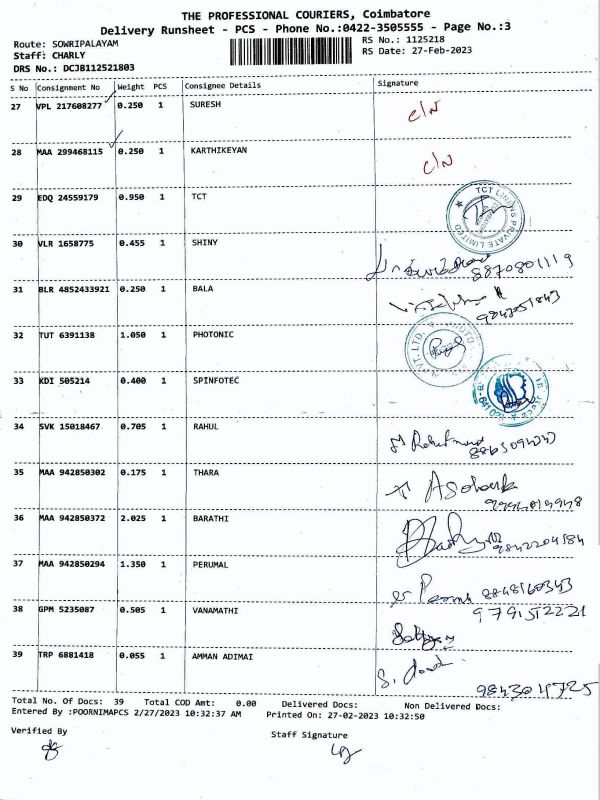 THE PROFESSIONAL COURIERS, Coimbatore
Delivery Runsheet - PCS - Phone No.:0422-3505555 - Page No.:3
Route: SOWRIPALAYAM
RS No.: 1125218
Staff: CHARLY
RS Date: 27-Feb-2023
DRS No.: DCJB112521803
S No Consignment No Weight PCS Consignee Details Signature
27 VPL 217608277 0.250 1 SURESH C/N
28 MAA 299468115 0.250 1 KARTHIKEYAN C/N
29 EDQ 24559179 0.950 1 TCT
TCT LINENS PRIVATE LIMITED
30 VLR 1658775 0.455 1 SHINY
8870801119
31 BLR 4852433921 0.250 1 BALA
32 TUT 6391138 1.050 1 PHOTONIC
33 KDI 505214 0.400 1 SPINFOTEC
34 SVK 15018467 0.705 1 RAHUL
35 MAA 942850302 0.175 1 THARA
36 MAA 942850372 2.025 1 BARATHI
9842204184
37 MAA 942850294 1.350 1 PERUMAL
38 GPM 5235087 0.505 1 VANAMATHI
39 TRP 6881418 0.055 1 AMMAN ADIMAI
Total No. Of Docs: 39 Total COD Amt: 0.00 Delivered Docs: Non Delivered Docs:
Entered By :POORNIMAPCS 2/27/2023 10:32:37 AM Printed On: 27-02-2023 10:32:50
Verified By
Staff Signature